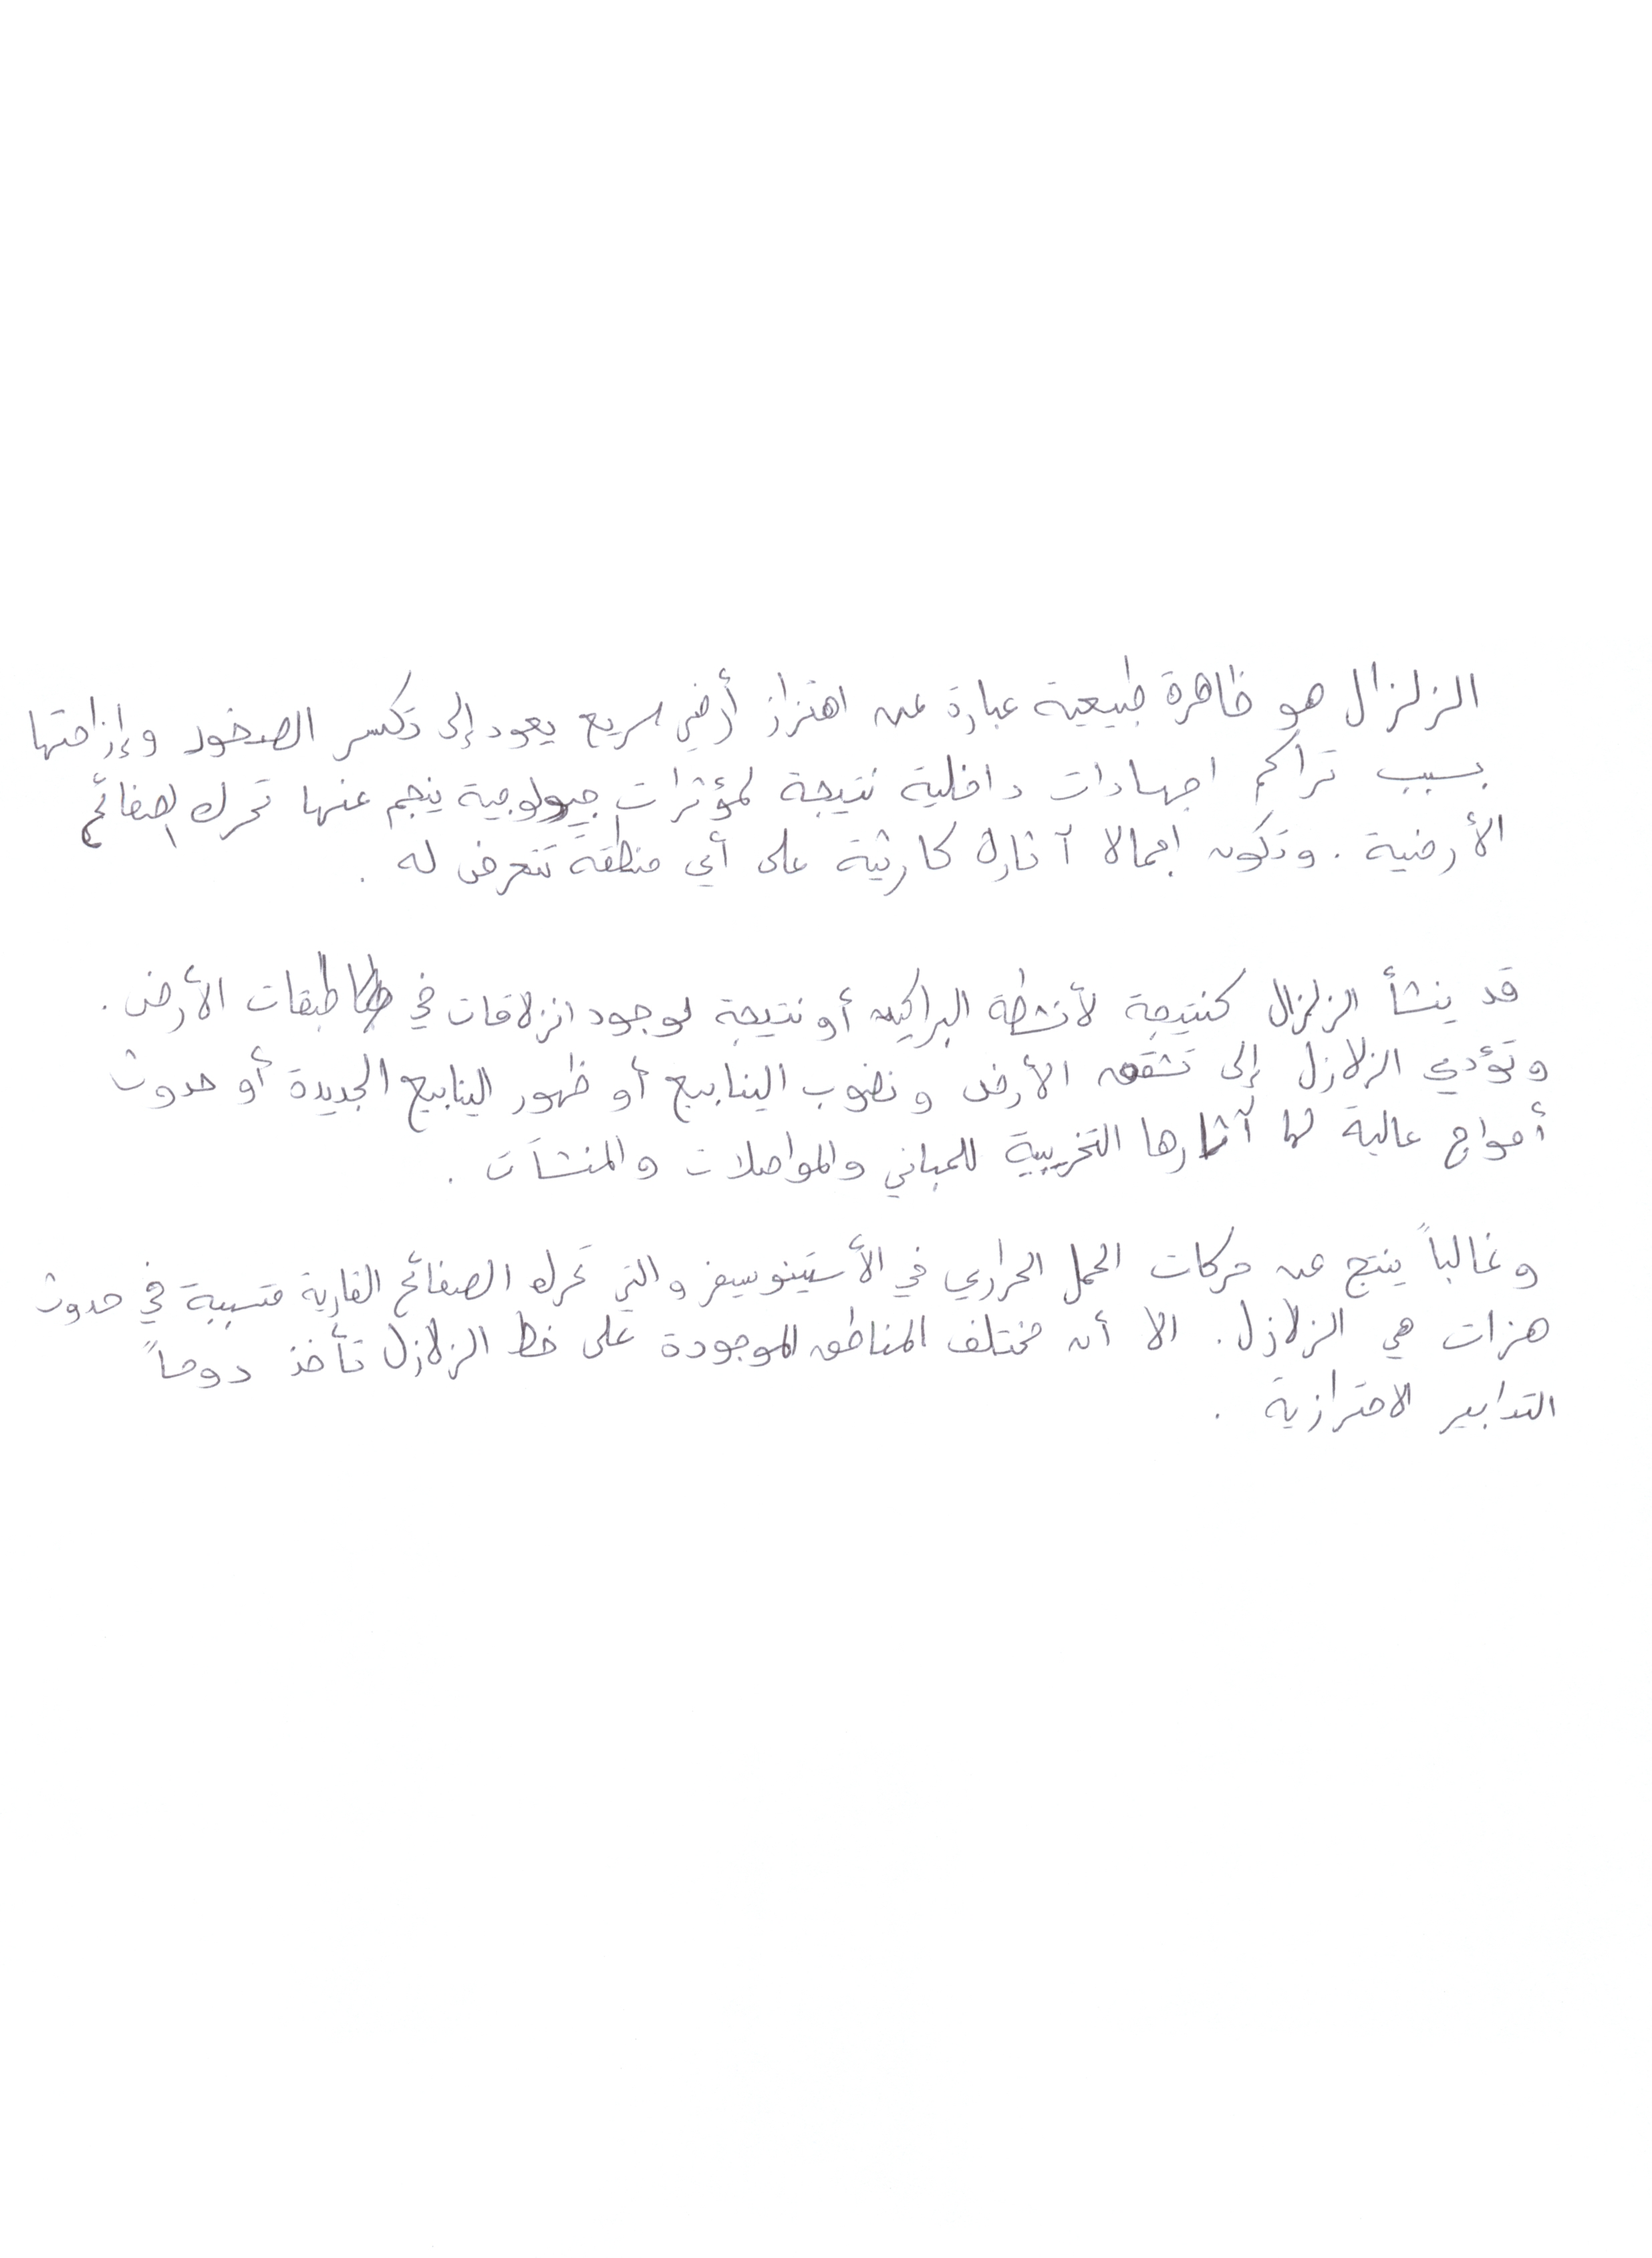 الزلزال هو ظاهرة طبيعية عبارة عن اهتزاز أرضي سريع يعود إلى تكسر الصخور وإزاحتها
بسبب تراكم اجهادات داخلية نتيجة لمؤثرات جيولوجية ينجم عنها تحرك الصفائح
الأرضية . وتكون اجمالا آثاره كارثية على أي منطقة تتعرض له .
قد ينشأ الزلزال كنتيجة لأنشطة البراكين أو نتيجة لوجود انزلاقات في طبقات الأرض .
وتؤدي الزلازل إلى تشقق الأرض ونضوب الينابيع أو ظهور الينابيع الجديدة أو حدوث
أمواج عالية لها آثارها التخريبية للمباني والمواصلات والمنشآت .
وغالباً ينتج عن حركات الحمل الحراري في الأستينوسيفر والتي تحرك الصفائح القارية متسببة في حدوث
هزات هي الزلازل . الا أن مختلف المناطق الموجودة على خط الزلازل تأخذ دوماً
التدابير الاحترازية .